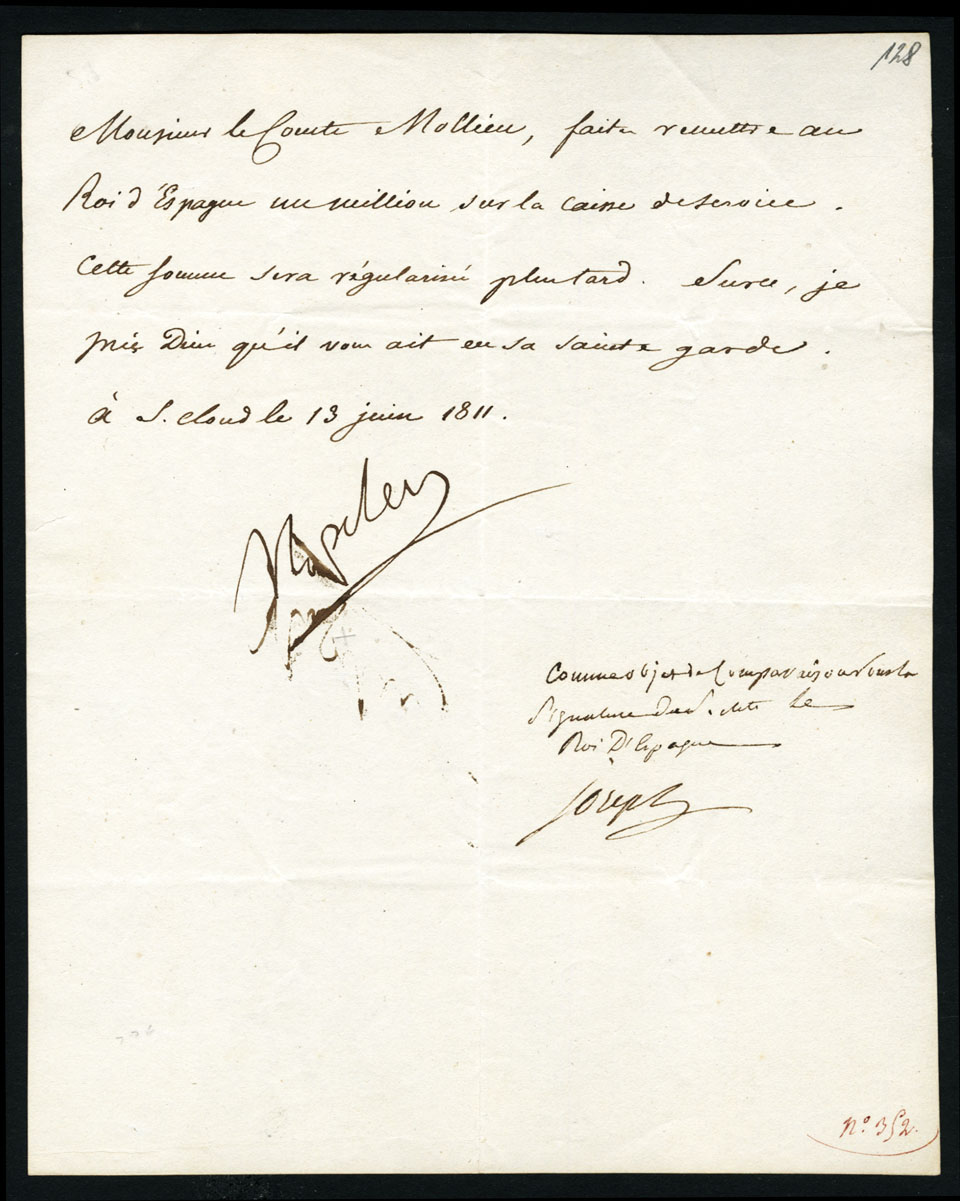 128
Monsieur le Comte Mollien, faite remettre au
Roi d'Espagne un million sur la caisse de service.
Cette somme sera régularisé plus tard. Sur ce, je
prie Dieu qu'il vous ait en sa sainte garde.
à S. Cloud le 13 juin 1811.
Napoleon
Comme objet de Comparaison
Signature de S. Mté le
Roi D'Espagne
Joseph
N.º 352.